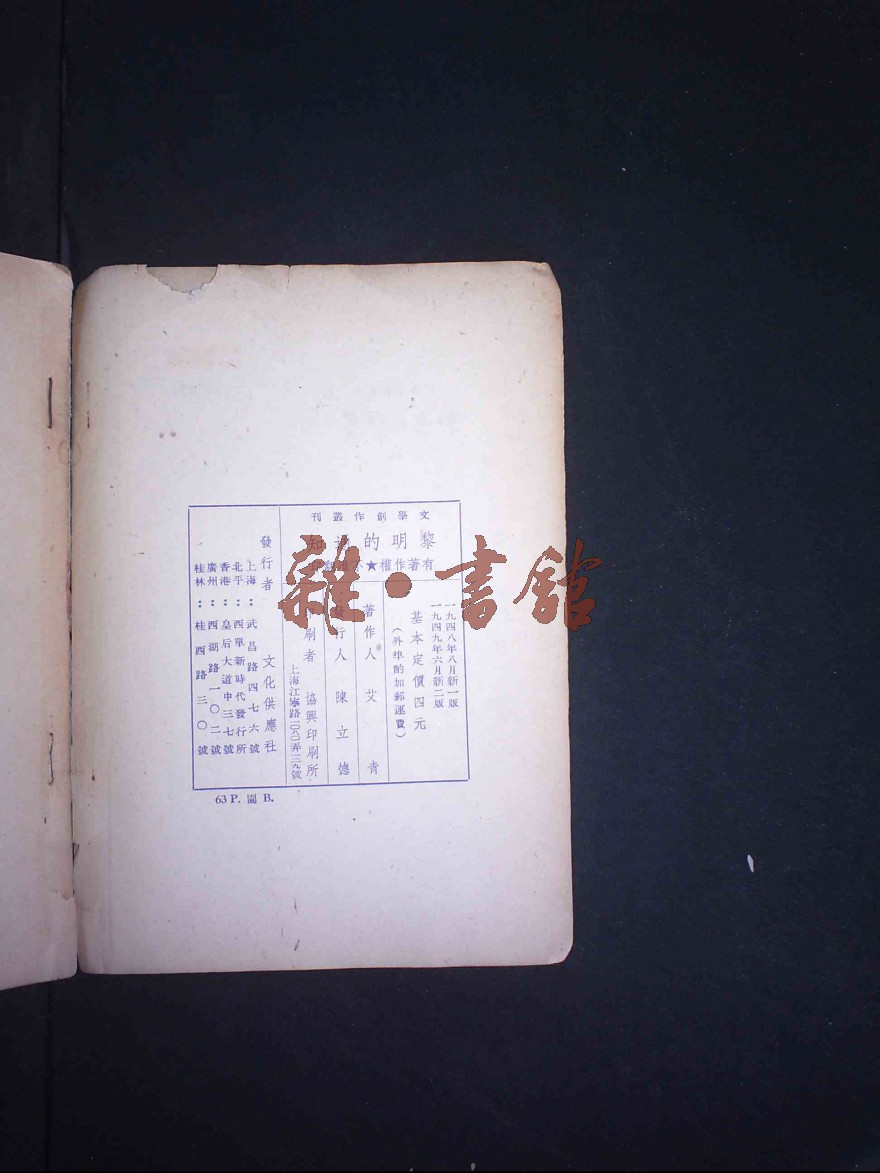 文學創作叢刊
黎明的通知
有著作權★不准翻印
一九四八年八月新一版
一九四九年六月新二版
基本定價四元
(外埠酌加郵運費)
著作人 艾青
發行人 陳立德
印刷者 協興印刷所
上海江寧路一〇八〇弄二九號
發行者 文化供應社
上海:武昌路四七六號
北平:西單新時代發行所
香港:皇后大道中三七號
廣州:西湖路一〇二號
桂林:桂西路三〇號
63 P. 圖 B.
雜·書館